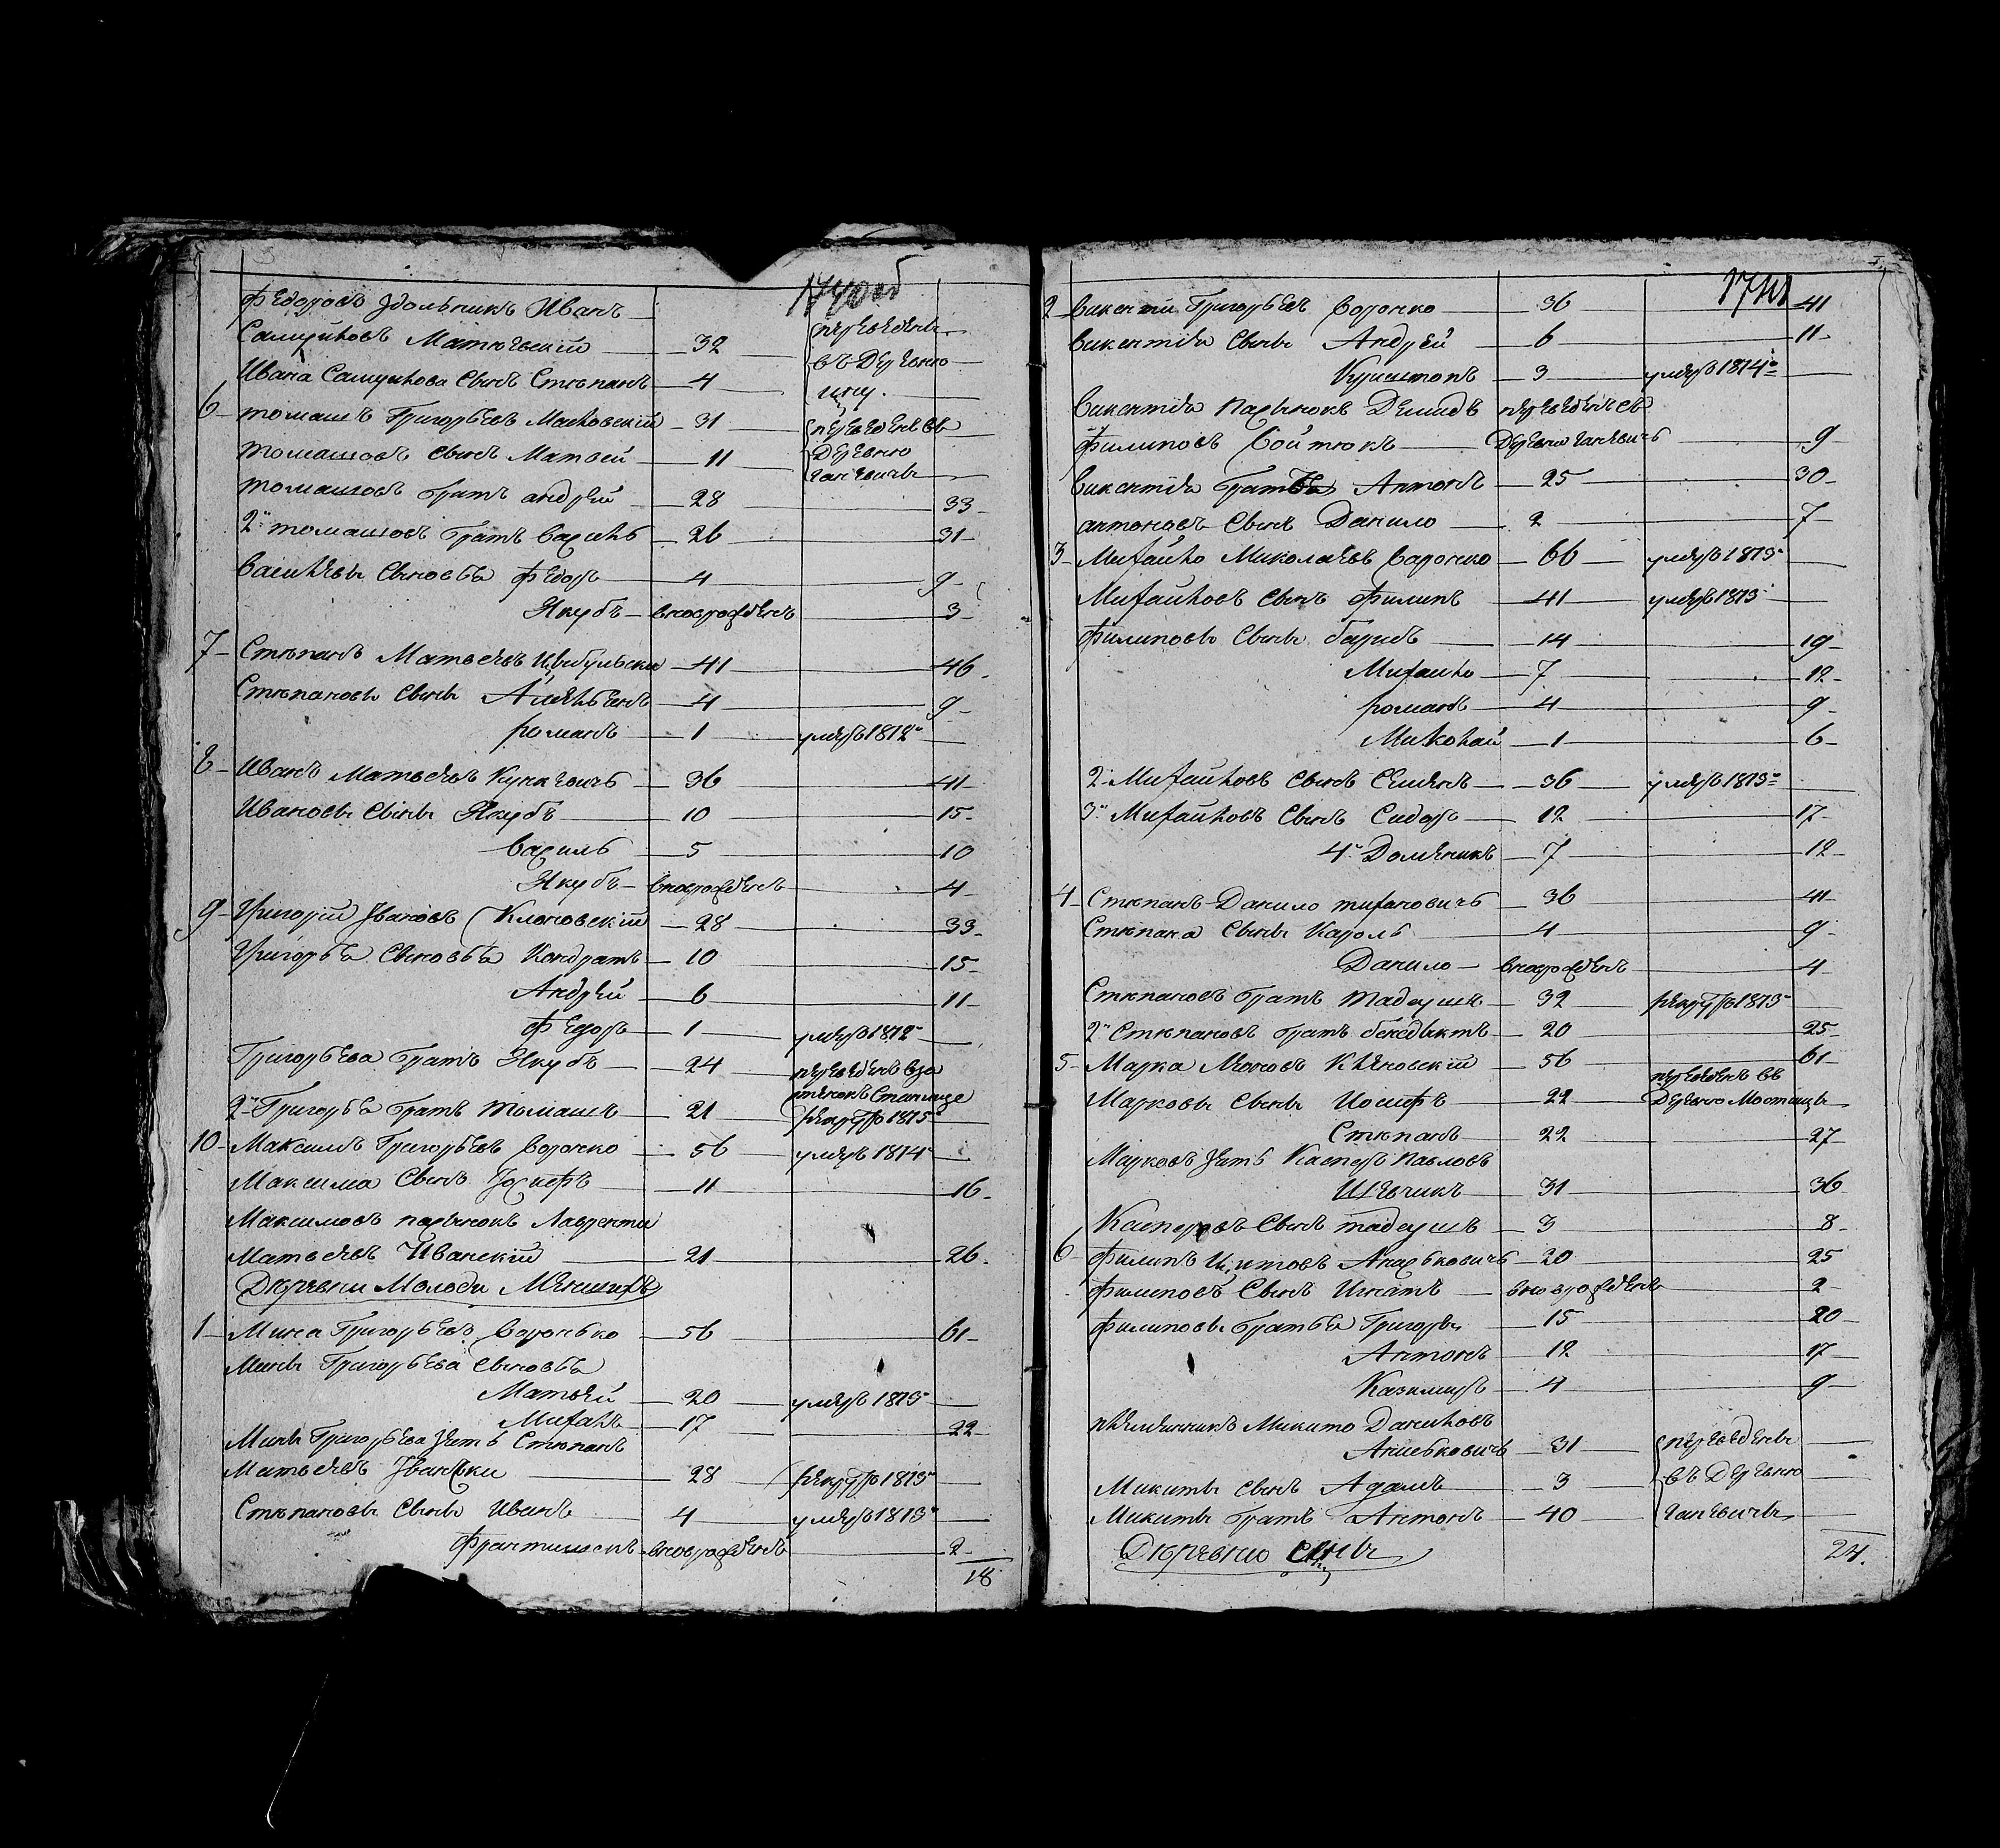 1740 об
Федоровъ здольникъ Иванъ
Самуйловъ Матюсвскій — 32 переведены
Ивана Самуйлова сынъ Стѣпанъ — 4 въ Деревню
6 томашъ Григорьевъ Маловскій — 31 переведенъ въ
томашовъ сынъ Матвей — 11 Деревню
Ганевичи
томашовъ братъ андрей — 28 — 33
2й томашовъ братъ василь — 26 — 31
васильевы сыновья федоръ — 4 — 9
Якубъ — вновророжденъ — 3
7 Стѣпанъ Матвѣевъ Цвибульски — 41 — 46
Стѣпановы сыны — 4 — 9
романъ — 1 умеръ 1812
8 Иванъ Матвѣевъ Кункевичъ — 36 — 41
Ивановы сыны Якубъ — 10 — 15
василь — 5 — 10
Якубъ — вноврожденъ — 4
9 Григорій Ивановъ Клоновскій — 28 — 33
Григорья сыновья Кондратъ — 10 — 15
Андрей — 6 — 11
федоръ — 1 умеръ 1812
Григорьева братъ Якубъ — 24 переведенъ въ за
стѣнокъ Станлице
2й Григорья братъ томашъ — 21 рекрутъ 1815
10 Максимъ Григорьевъ воронко — 56 умеръ 1814
Максима сынъ Іосифъ — 11 — 16
Максимовъ пасынокъ Лаврентій
Матвѣевъ Иванскій — 21 — 26
Дѣревни Молоди Меншихъ
1 Мина Григорьевъ воронько — 56 — 61
Мины Григорьева сыновья
Матвѣй — 20 умеръ 1813
Михалъ — 17 — 22
Мины Григорьева зять Стѣпанъ
Матвѣевъ Ивански — 28 рекрутъ 1813
Стѣпановы сыны Иванъ — 4 умеръ 1813
Францишекъ — вноврожденъ — 2
18
1741
2 викентій Григорьевъ воронко — 36 — 41
викентія сыны Андрей — 6 — 11
Куриштопъ — 3 умеръ 1814го
викентія пасынокъ Демидъ переведенъ съ
филиповъ войтюкъ — Деревни Ганевичъ — 9
викентія братъ Антонъ — 25 — 30
антоновъ сынъ Данило — 2 — 7
3 Михайло Миколаевъ варонко — 66 умеръ 1813
Михайловъ сынъ филипъ — 41 умеръ 1813
филиповы сыны барысъ — 14 — 19
Михайло — 7 — 12
романъ — 4 — 9
Миколай — 1 — 6
2й Михайловъ сынъ Семенъ — 36 умеръ 1813
3й Михайловъ сынъ Сидоръ — 12 — 17
4й Доменикъ — 7 — 12
4 Стѣпанъ Данило тихановичъ — 36 — 41
Стѣпана сыны Кароль — 4 — 9
Данило — вноврожденъ — 4
Стѣпановъ братъ тадеушъ — 32 рекрутъ 1813
2й Стѣпановъ братъ бенедыктъ — 20 — 25
5 Марка Леоновъ Кленовскій — 56 — 61
Марковы сыны Иосифъ — 22 переведенъ въ
Деревню Мостищы
Стѣпанъ — 22 — 27
Марковъ зять Касперъ павловъ
Шевчикъ — 31 — 36
Касперовъ сынъ тадеушъ — 3 — 8
6 филипъ — 20 — 25
филиповъ сынъ Игнатъ — вноврожденъ — 2
филиповы братья Григоры — 15 — 20
Антонъ — 12 — 17
Казимиръ — 4 — 9
племянникъ Микито Даниловъ
31 переведены
Микиты сынъ Адамъ — 3 въ Деревню
Микиты братъ Антонъ — 40 Ганевичи
Дѣревню
24.